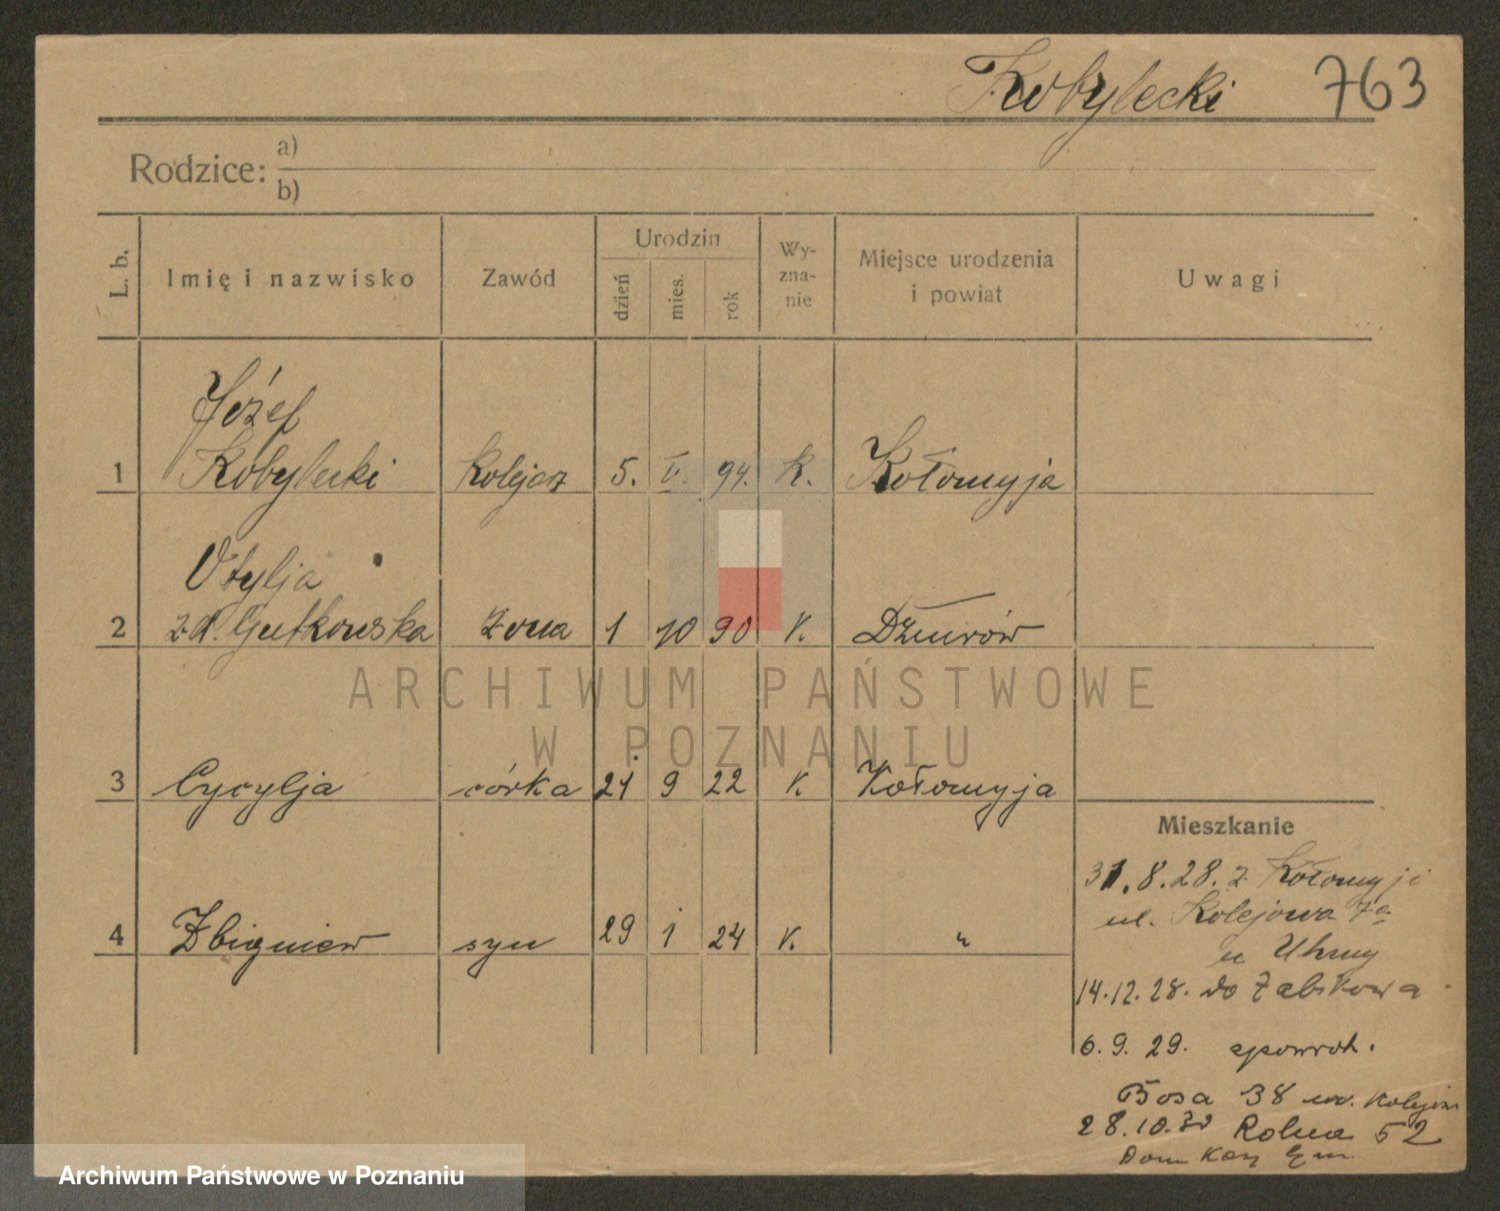 Kobylecki 763
Rodzice: a)
b)
L. b. Imię i nazwisko Zawód Urodzin dzień mies. rok Wy-zna-nie Miejsce urodzenia i powiat Uwagi
Józef
1 Kobylecki Kolejarz 5. V. 94. K. Kołomyja
Otylja
2 z d. Gutkowska żona 1 10 90 K. Dżurów
3 Cycylja córka 21 9 22 K. Kołomyja
Mieszkanie
4 Zbigniew syn 29 1 24 K. "
31.8.28. z Kołomyji
ul. Kolejowa 7a
u
14.12.28. do Żabikowa
6.9.29. spowrot.
Bosa 38
28.10.30 Rolna 52
Dom
ARCHIWUM PAŃSTWOWE
W POZNANIU
Archiwum Państwowe w Poznaniu